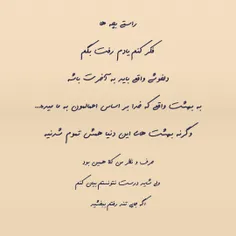 راستی بچه ها
فکر کنم یادم رفت بگم
دلخوشی واقعی باید به آخرت باشه
به بهشت واقعی که خدا بر اساس اعمالمون به ما میده...
وگرنه بهشت های این دنیا همش تموم شدنیه
حرف و نظر من کلا همین بود
ولی شاید درست نتونستم بیان کنم
اگه جایی تند رفتم ببخشید